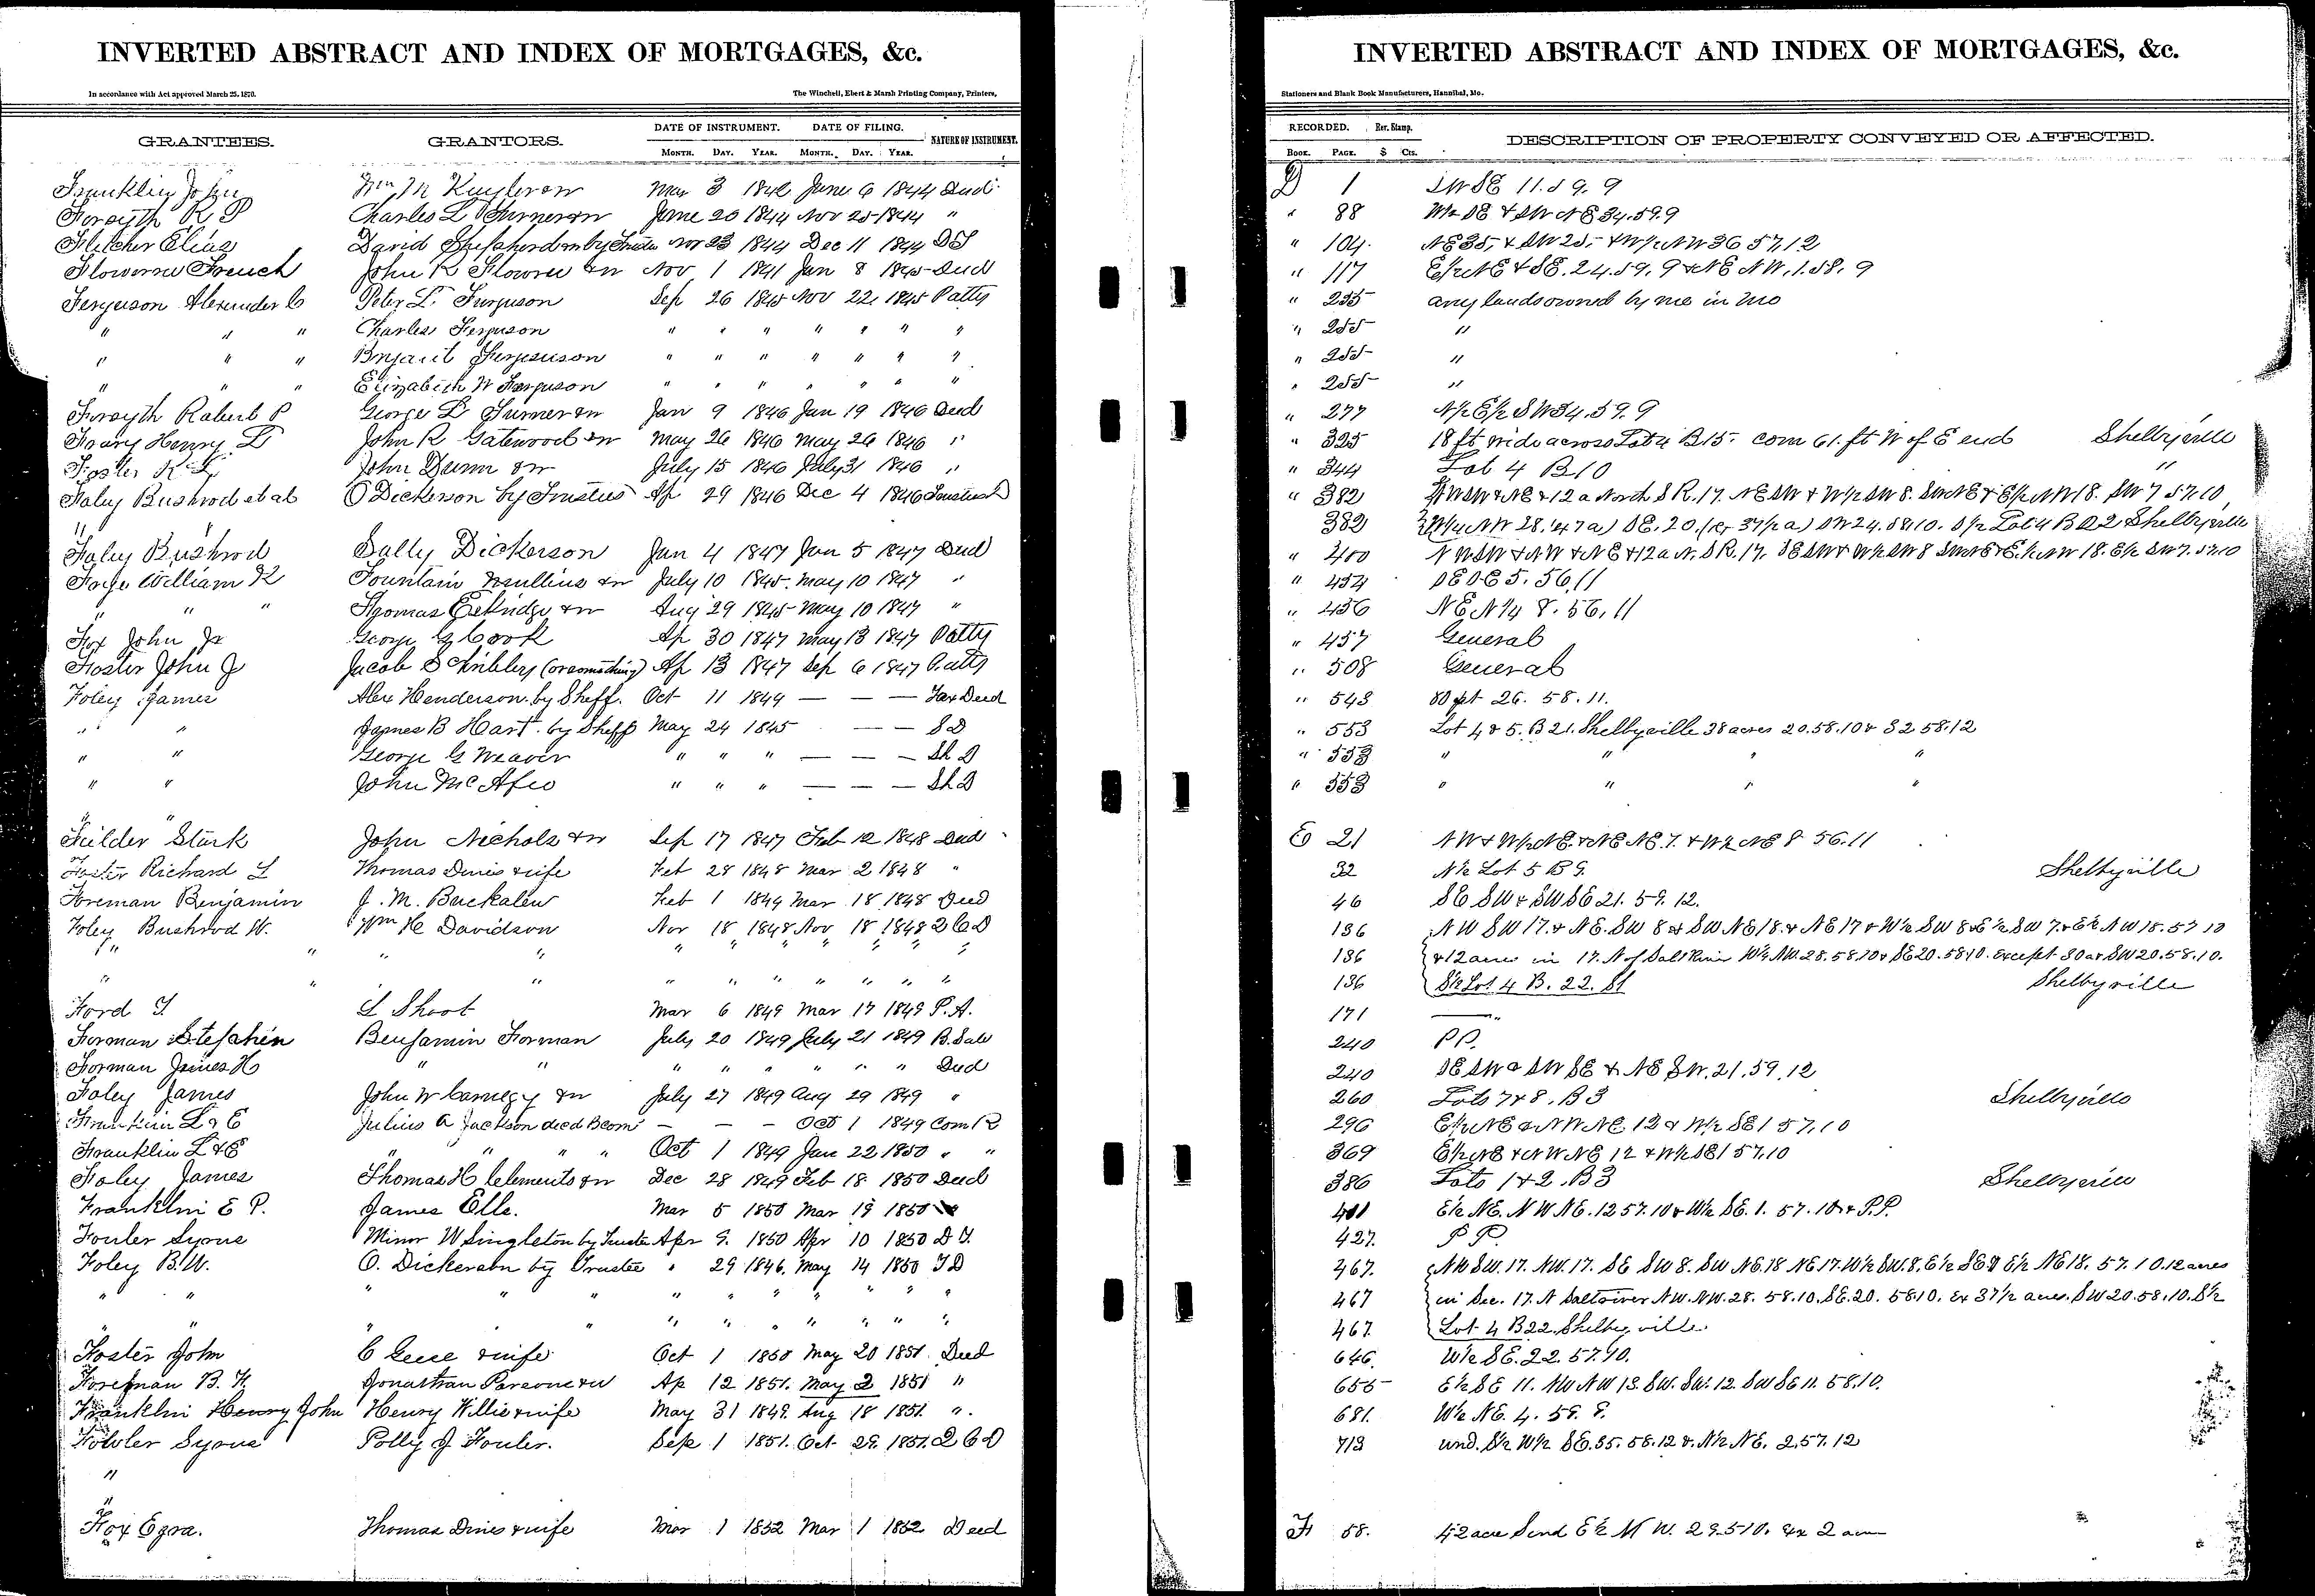 INVERTED ABSTRACT AND INDEX OF MORTGAGES, &c.
In accordance with Act approved March 25, 1870. The Winchell, Ebert & Marsh Printing Company, Printers,
GRANTEES. GRANTORS. DATE OF INSTRUMENT. DATE OF FILING. NATURE OF INSTRUMENT.
MONTH. DAY. YEAR. MONTH. DAY. YEAR.
Franklin John Wm M 3 June 6 1844 Deed
Forsyth R P Charles L Turner &w June 20 1844 Nov 25 1844 "
Fletcher Elias David Shepherd by Trustee Nov 23 1844 Dec 11 1844 DT
Flowerree French John R Flowree &w Nov 1 1841 Jan 8 1845 Deed
Ferguson Alexander C Peter L. Furguson Sep 26 1845 Nov 22 1845 Patty
" " " Charles Ferguson " " " " " " "
" " " Bryant Furguson " " " " " " "
" " " Elizabeth W Ferguson " " " " " "
Forsyth Robert P George L Turner &w Jan 9 1846 Jan 19 1846 Deed
Henry L John R Gatewood &w May 26 1846 May 26 1846 "
Foster R L John Dunn &w July 15 1846 July 31 1846 "
Foley Bushrod et al O Dickerson by Trustees Ap 29 1846 Dec 4 1846
"
Foley Bushrod Sally Dickerson Jan 4 1847 Jan 5 1847 Deed
William K Fountain Mullins &w July 10 1845 May 10 1847 "
" " " Thomas Eskridge &w Aug 29 1845 May 10 1847 "
Fox John Jr George G Cook Ap 30 1847 May 13 1847 Patty
Foster John J Jacob Schribler (or something) Ap 13 1847 Sep 6 1847 Patty
Foley James Alex Henderson by Sheff. Oct 11 1849 — — — Tax Deed
" " James B Hart by Sheff May 24 1845 — — SD
" " George G Weaver " " " — — — Sh D
" " John McAfee " " " — — — Sh D
" "
Fielder Stark John Nichols &w Sep 17 1847 Feb 12 1848 Deed
Foster Richard L Thomas Dines & wife Feb 28 1848 Mar 2 1848 "
Foreman Benjamin J. M. Buckalew Feb 1 1849 Mar 18 1848 Deed
Foley Bushrod W. Wm H Davidson Nov 18 1848 Nov 18 1848 2 C D
" " " " " " " " " "
" " " " " " " " " "
Ford T L Shoot Mar 6 1849 Mar 17 1849 P. A.
Forman Stephen Benjamin Forman July 20 1849 July 21 1849 B. Sale
Forman James H " " " " " " " " Deed
Foley James John W Carnegy &w July 27 1849 Aug 29 1849 "
Franklin L & E Julius A Jackson decd Bcom — — — Oct 1 1849 Com R
Franklin L & E " " " " Oct 1 1849 Jan 22 1850 " "
Foley James Thomas H Clements &w Dec 28 1849 Feb 18 1850 Deed
Franklin E P. James Elle. Mar 5 1850 Mar 19 1850
Fouler Syous Minor W Singleton by Trustee Apr 9. 1850 Apr 10 1850 D T.
Foley B. W. O. Dickerson by Trustee " 29 1846. May 14 1850 T D
" " " " " " " " " " " "
" " " " " " " " "
Foster John C Geese & wife Oct 1 1850 May 20 1851 Deed
Foreman B. F. Jonathan Parsons &w Ap 12 1851. May 2 1851 "
Franklin Henry John Henry Willis & wife May 31 1849. Aug 18 1851. "
Fowler Syous Polly J Fouler. Sep 1 1851. Oct. 29. 1851. 2 C D
"
"
Fox Ezra. Thomas Dines & wife Mar 1 1852 Mar 1 1852 Deed
INVERTED ABSTRACT AND INDEX OF MORTGAGES, &c.
Stationers and Blank Book Manufacturers, Hannibal, Mo.
RECORDED. Rev. Stamp. DESCRIPTION OF PROPERTY CONVEYED OR AFFECTED.
BOOK. PAGE. $ Cts.
D 1 SW SE 11. 59. 9
" 88 W½ SE & SW NE 34. 59. 9
" 104 NE 35, & SW 25, & W½ NW 36 57, 12
" 117 E½ NE & SE. 24. 59. 9 & NE NW. 1. 58. 9
" 255 any lands owned by me in Mo
" 255 "
" 255 "
" 255 "
" 277 N½ E½ SW 34. 59. 9
" 325 18 ft wide across Lot 4 B 15. com 61. ft W of E end Shelbyville
" 344 Lot 4 B 10 "
" 382 NW SW & NE & 12 a North S R. 17. NE SW & W½ SW 8. SW NE & E½ NW 18. SW 7 57. 10
382 W½ NW 28. SE. 20. (ex 37½ a) SW 24. 58. 10. S½ Lot 4 B 22 Shelbyville
" 400 NW SW & NW & NE & 12 a N. S R. 17. SE SW & W½ SW 8 SW NE & E½ NW 18. E½ SW 7. 57. 10
" 454 SE SE 5. 56. 11
" 456 NE NW 8. 56. 11
" 457 General
" 508 General
" 543 80 pt 26. 58. 11.
" 553 Lot 4 & 5. B 21. Shelbyville 38 acres 20. 58. 10 & 32 58. 12
" 553 " " " "
" 553 " " " "
E 21 NW & W½ NE. & NE NE. 7. & W½ NE 8 56. 11
32 N½ Lot 5 B 9. Shelbyville
46 SE SW & SW SE 21. 59. 12.
136 NW SW 17. & NE. SW 8 & SW NE 18. & NE 17 & W½ SW 8 & E½ SW 7. & E½ NW 18. 57 10
136 & 12 acres in 17. N of Salt River W½ NW. 28. 58. 10 & SE 20. 58. 10. Except 30 a & SW 20. 58. 10.
136 S½ Lot 4 B. 22. Shelbyville
171 —
240 PP.
240 SE SW & SW SE & NE SW. 21. 59. 12
260 Lots 7 & 8. B 3 Shelbyville
296 E½ NE & NW NE 12 & W½ SE 1 57. 10
369 E½ NE & NW NE 12 & W½ SE 1 57. 10
386 Lots 1 & 2. B 3 Shelbyville
401 E½ NE. NW NE. 12 57. 10 & W½ SE. 1. 57. 10 & P.P.
427. P P.
467. NW SW. 17. NW. 17. SE SW 8. SW NE. 18 NE 17. W½ SW. 8. E½ SE 7 E½ NE 18. 57. 10. 12 acres
467 in Sec. 17. N Salt river NW. NW. 28. 58. 10. SE. 20. 58. 10. Ex 37½ acres. SW 20. 58. 10. S½
467. Lot 4 B 22. Shelbyville.
646 W½ SE. 22. 57. 10.
655 E½ SE 11. NW NW 13. SW. SW. 12. SW SE 11. 58. 10.
681. W½ NE. 4. 59. 9.
713 und. S½ W½ SE. 35. 58. 12 & N½ NE. 2. 57. 12
F 58. 42 acre S end E½ N W. 29. 57 10. ex 2 acre